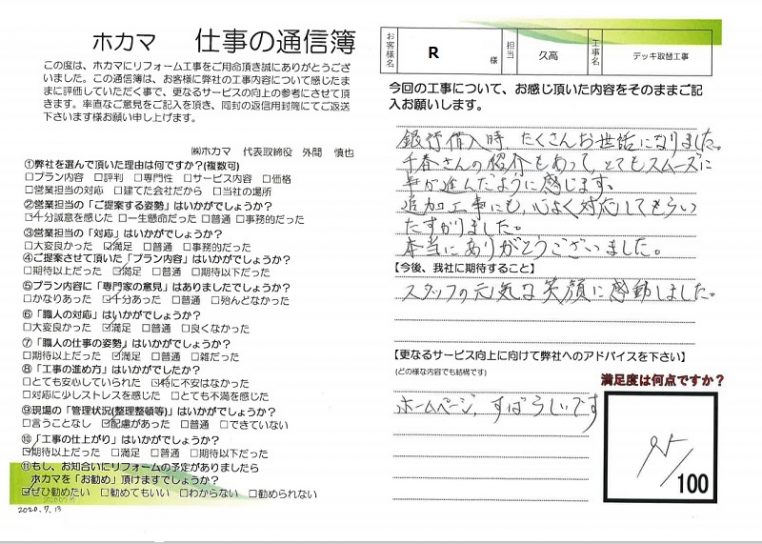 ホカマ 仕事の通信簿
この度は、ホカマにリフォーム工事をご用命頂き誠にありがとうござ
いました。この通信簿は、お客様に弊社の工事内容について感じたま
まに評価していただく事で、更なるサービスの向上の参考にさせて頂
きます。率直なご意見をご記入を頂き、同封の返信用封筒にてご返送
下さいます様お願い申し上げます。
㈱ホカマ 代表取締役 外間 慎也
①弊社を選んで頂いた理由は何ですか?(複数可)
□プラン内容 □評判 □専門性 □サービス内容 □価格
□営業担当の対応 □建てた会社だから □当社の場所
②営業担当の「ご提案する姿勢」はいかがでしょうか?
☑十分誠意を感じた □一生懸命だった □普通 □事務的だった
③営業担当の「対応」はいかがでしょうか?
□大変良かった ☑満足 □普通 □事務的だった
④ご提案させて頂いた「プラン内容」はいかがでしょうか?
□期待以上だった ☑満足 □普通 □期待以下だった
⑤プラン内容に「専門家の意見」はありましたでしょうか?
□かなりあった ☑十分あった □普通 □殆んどなかった
⑥「職人の対応」はいかがでしょうか?
□大変良かった ☑満足 □普通 □良くなかった
⑦「職人の仕事の姿勢」はいかがでしょうか?
□期待以上だった ☑満足 □普通 □雑だった
⑧「工事の進め方」はいかがでしたか?
□とても安心していられた ☑特に不安はなかった
□対応に少しストレスを感じた □とても不満を感じた
⑨現場の「管理状況(整理整頓等)」はいかがでしょうか?
□言うことなし ☑配慮があった □普通 □できていない
⑩「工事の仕上がり」はいかがでしょうか?
☑期待以上だった □満足 □普通 □期待以下だった
⑪もし、お知合いにリフォームの予定がありましたら
ホカマを「お勧め」頂けますでしょうか?
☑ぜひ勧めたい □勧めてもいい □わからない □勧められない
2020.7.13
お客様名 R 様 担当 久高 工事名 デッキ取替工事
今回の工事について、お感じ頂いた内容をそのままご記
入お願いします。
銀行借入時、たくさんお世話になりました。
千春さんの紹介もあって、とてもスムーズに
事が進んだように感じます。
追加工事にも、心よく対応してもらい
たすかりました。
本当にありがとうございました。
【今後、我社に期待すること】
スタッフの元気な笑顔に感動しました。
【更なるサービス向上に向けて弊社へのアドバイスを下さい】
(どの様な内容でも結構です)
ホームページ、すばらしいです
満足度は何点ですか?
/100